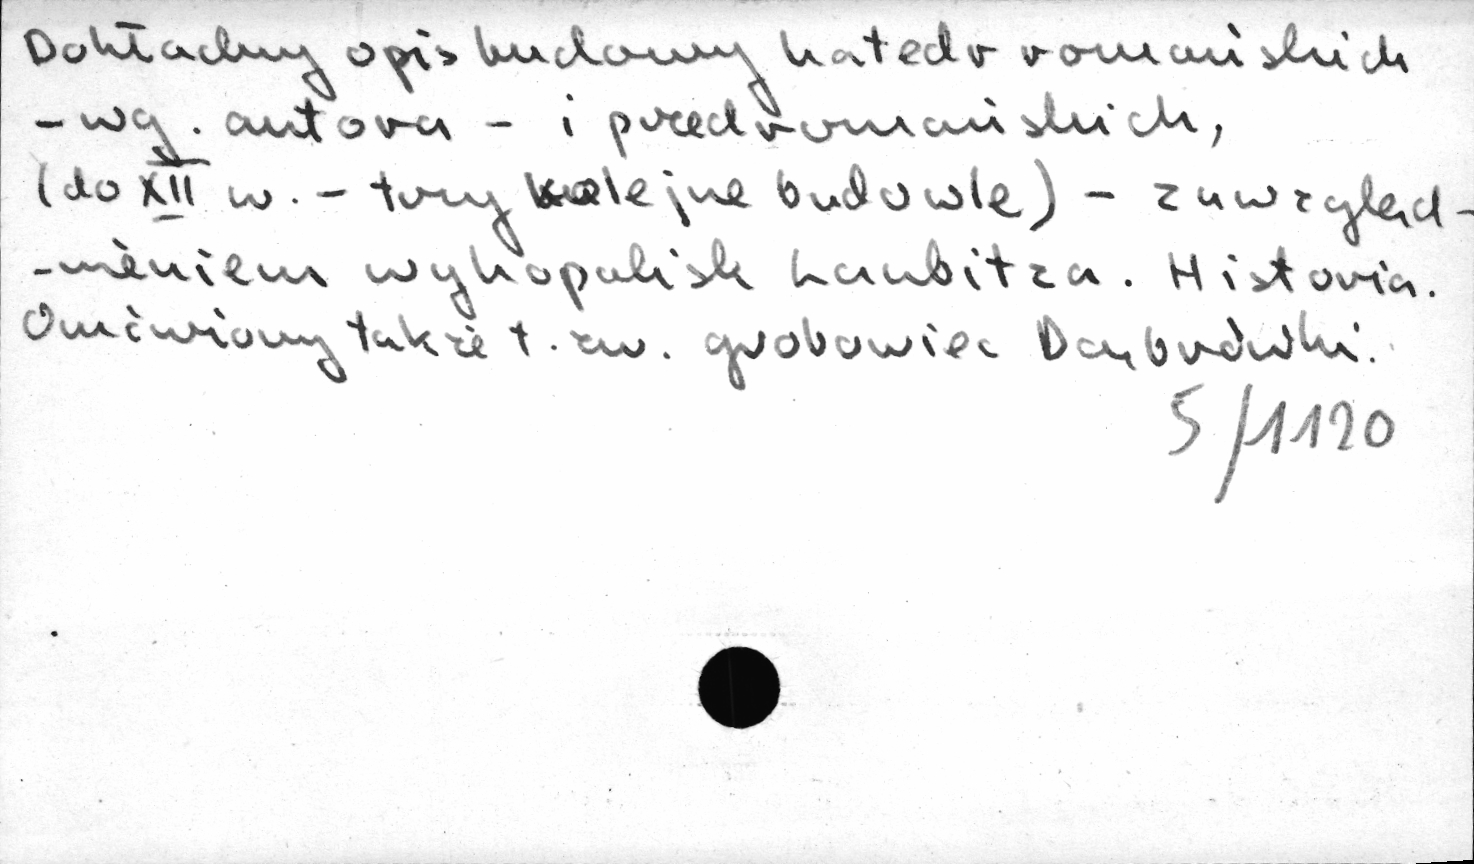 Dokładny opis budowy katedr romańskich
- wg. autora - i przedromańskich,
(do XII w. - trzy kolejne budowle) - z uwzględ-
-nieniem wykopalisk Laubitza. Historia.
Omówiony także t. zw. grobowiec Dąbrówki.
5/1120